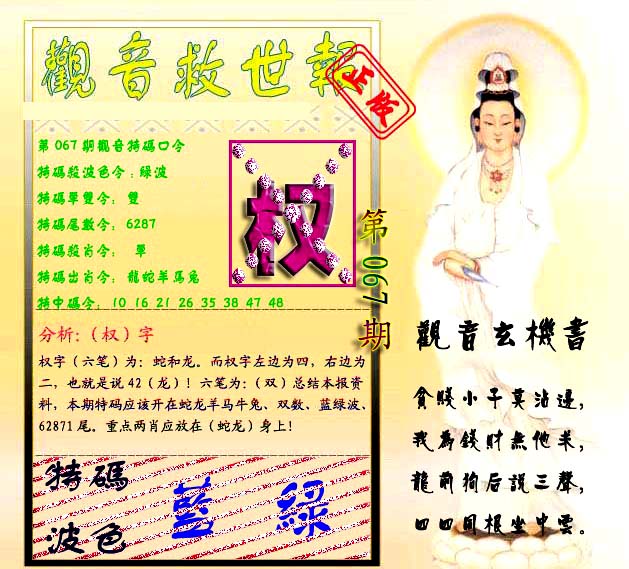 觀音救世報
正版
第067期觀音特碼口令
特碼殺波色令:綠波
特碼單雙令: 雙
特碼尾數令: 6287
特碼殺肖令: 單
特碼出肖令: 龍蛇羊馬兔
特中碼令: 10 16 21 26 35 38 47 48
权
第067期
分析:(权)字
权字(六笔)为：蛇和龙。而权字左边为四，右边为
二，也就是说42（龙）！六笔为：(双）总结本报资
料，本期特码应该开在蛇龙羊马牛兔、双数、蓝绿波、
62871尾。重点两肖应放在（蛇龙）身上！
特碼
波色
藍 綠
觀音玄機書
貪賤小子莫沾邊,
我為錢財無他求,
龍前狗后説三聲,
四四同根坐中雲。